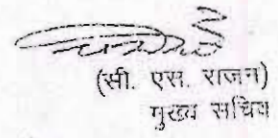 (सी. एस. राजन)
मुख्य सचिव